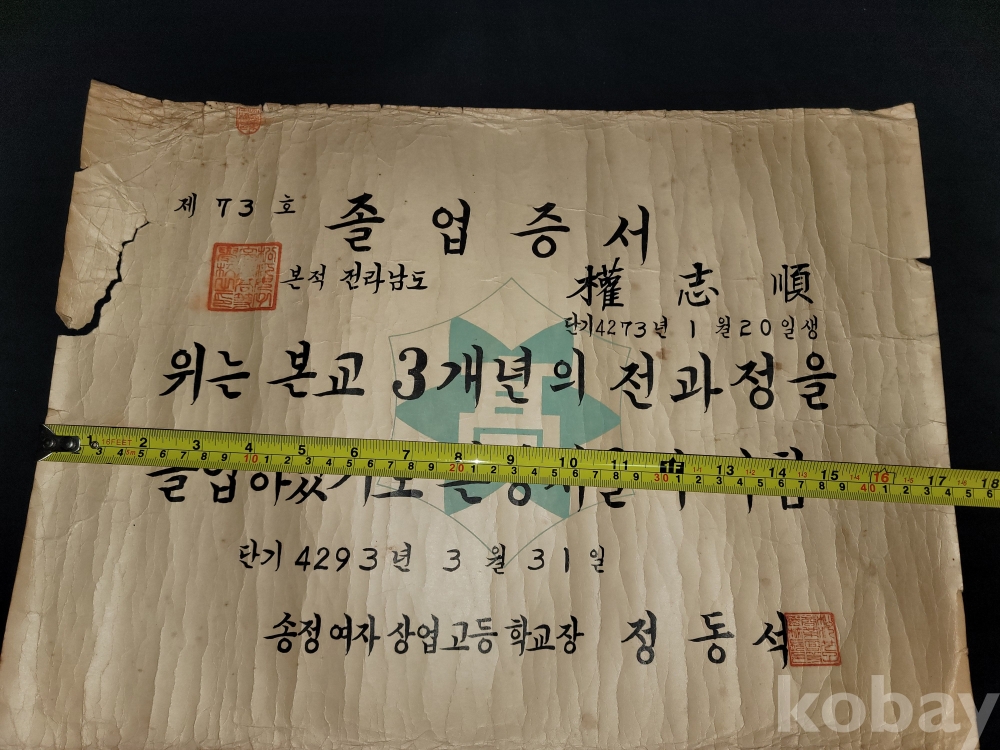 제 73 호
졸업증서
본적 전라남도
權志順
단기 4273년 1월 20일생
위는 본교 3개년의 전과정을
단기 4293년 3월 31일
송정여자상업고등학교장 정동석
16FEET
1 2 3 4 5 6 7 8 9 10 11 1F 13 14 15 16 17 18
kobay